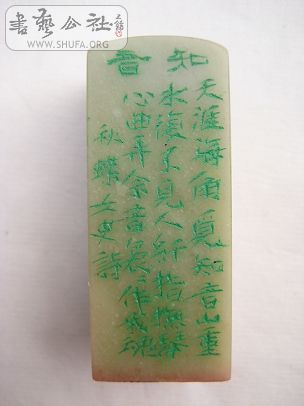 書藝公社
WWW.SHUFA.ORG
知音
天涯海角覓知音山重
水複不見人纤指撫琴
心曲弄余音裊作魂
秋蟬女史詩